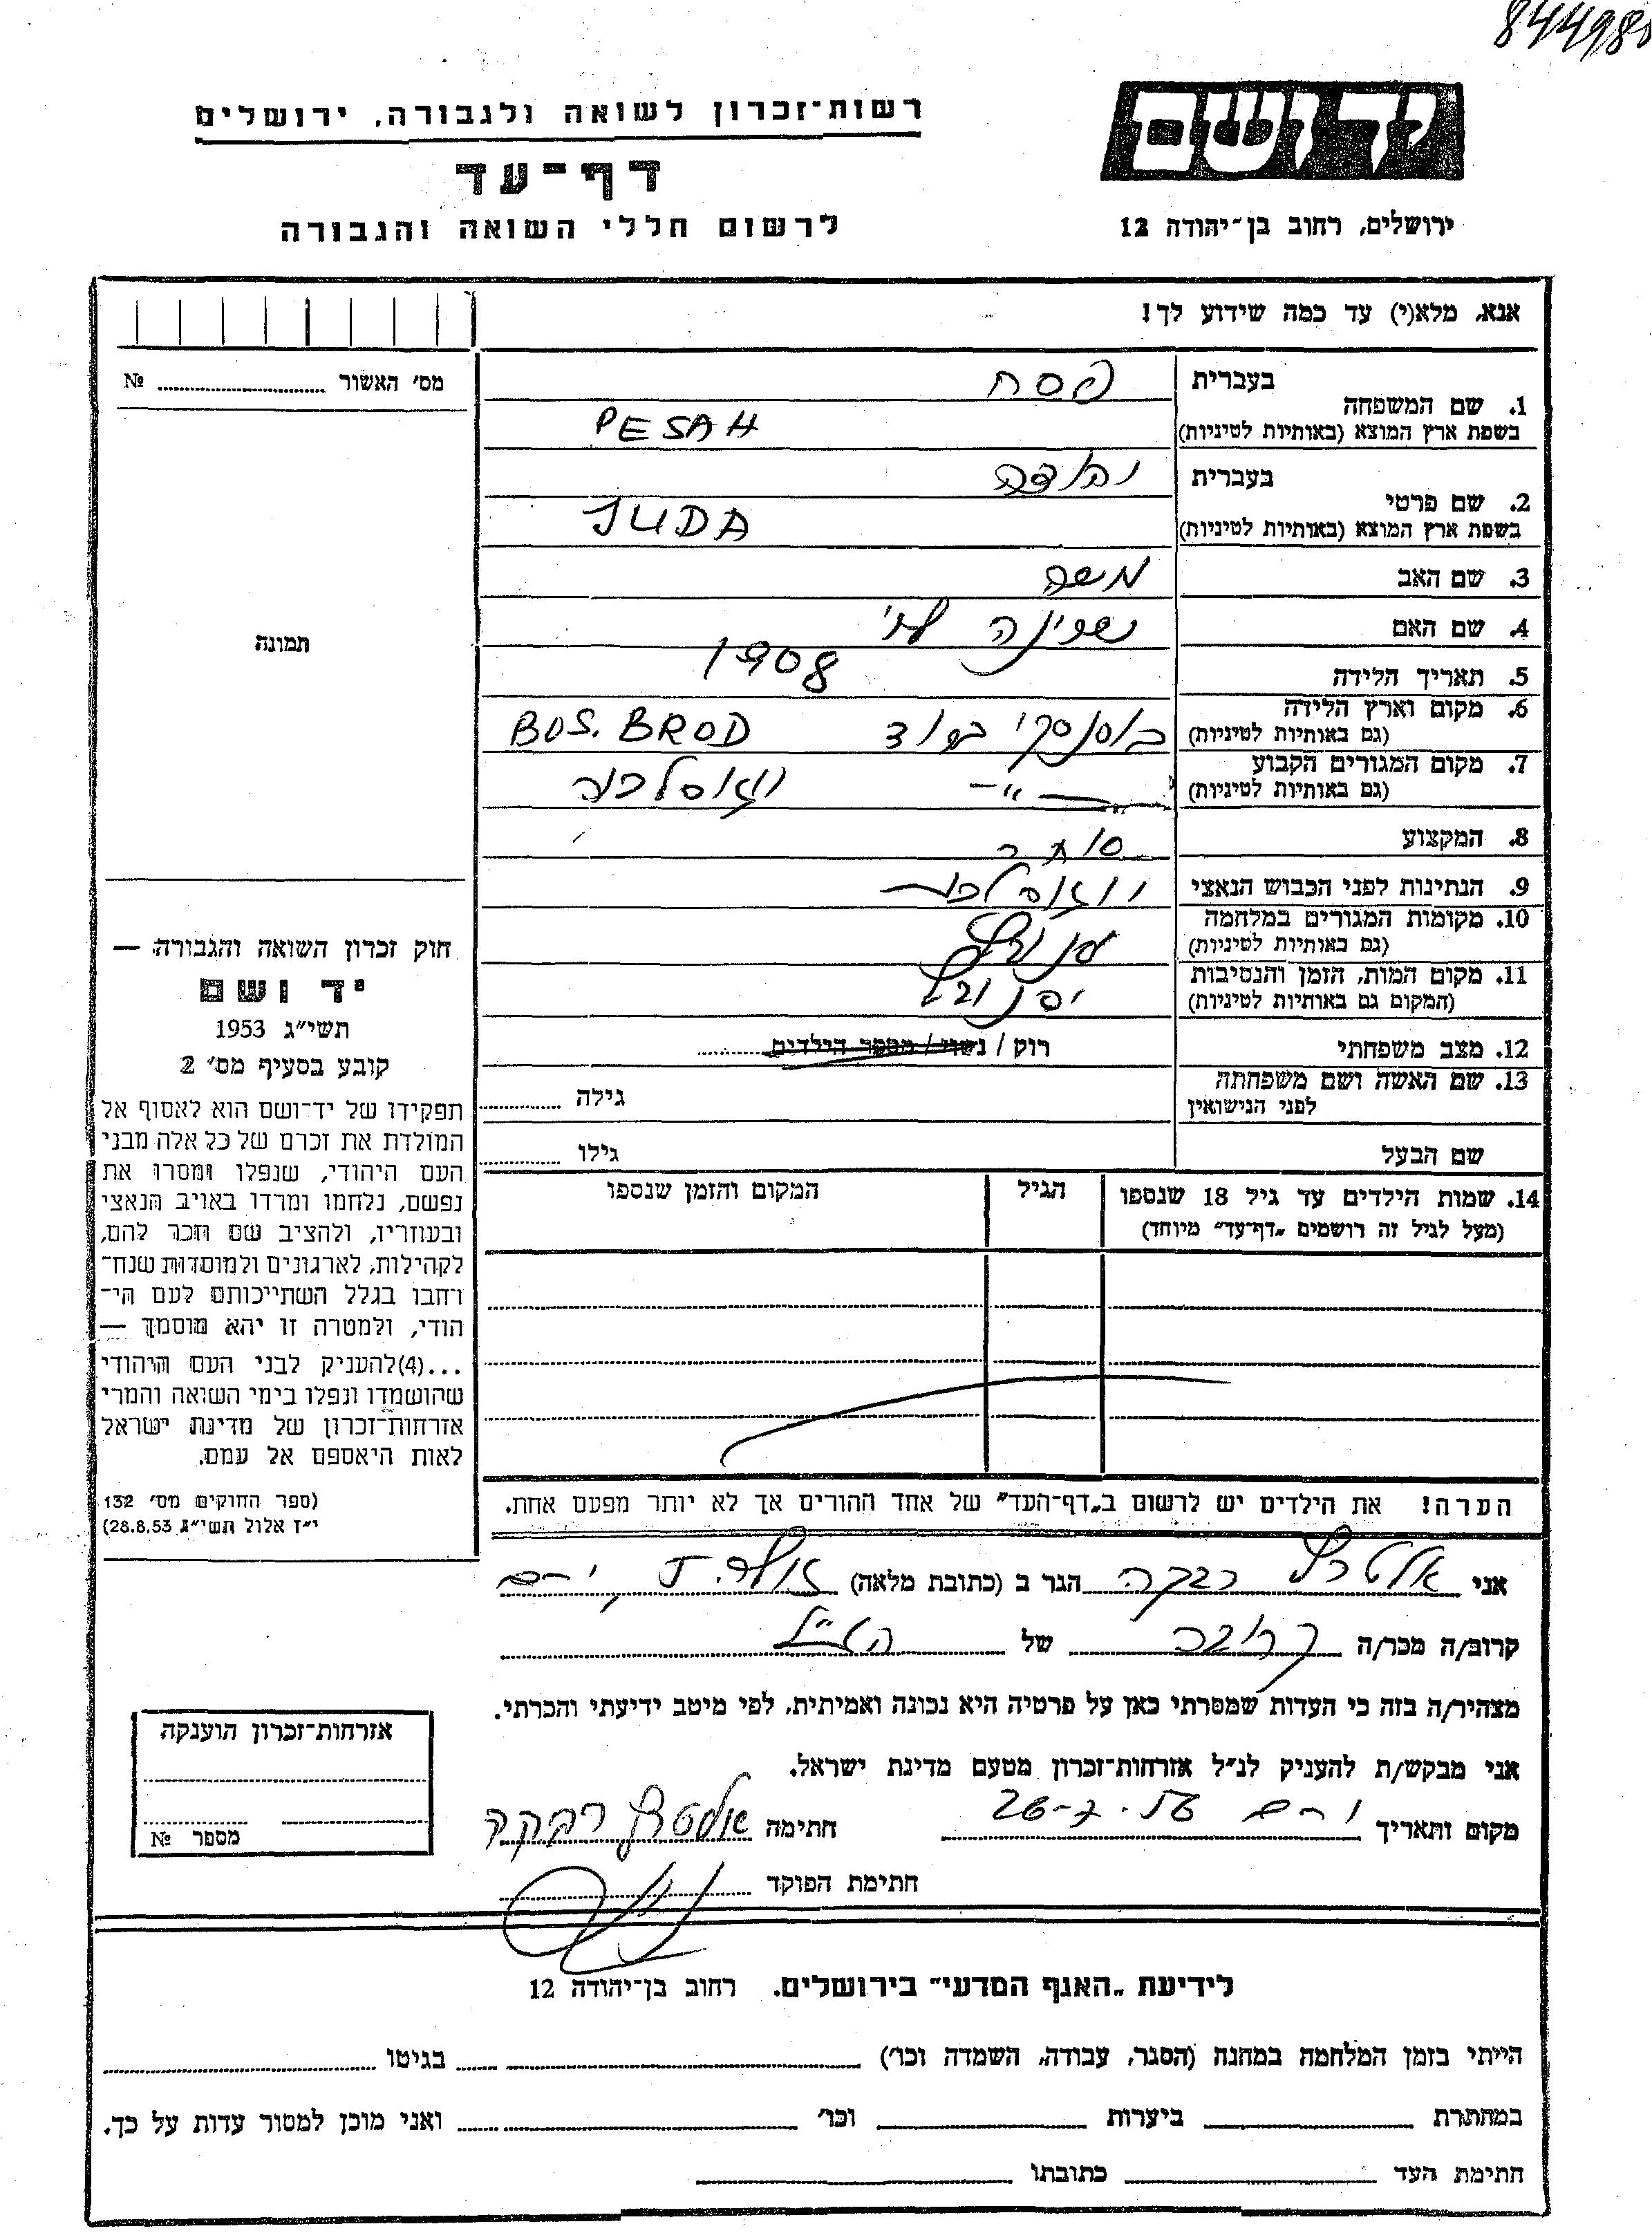 844980
יד ושם
ירושלים, רחוב בן־יהודה 12
רשות־זכרון לשואה ולגבורה, ירושלים
דף־עד
לרשום חללי השואה והגבורה
אנא, מלא(י) עד כמה שידוע לך!
בעברית פסח
1. שם המשפחה
בשפת ארץ המוצא (באותיות לטיניות) PESAH
בעברית יהודה
2. שם פרטי
בשפת ארץ המוצא (באותיות לטיניות) JUDA
3. שם האב משה
4. שם האם
5. תאריך הלידה 1908
6. מקום וארץ הלידה
(גם באותיות לטיניות) בוסנסקי ברוד BOS. BROD
7. מקום המגורים הקבוע
(גם באותיות לטיניות) –״– יוגוסלביה
8. המקצוע סוחר
9. הנתינות לפני הכבוש הנאצי יוגוסלבית
10. מקומות המגורים במלחמה
(גם באותיות לטיניות)
11. מקום המות, הזמן והנסיבות
(המקום גם באותיות לטיניות)
12. מצב משפחתי רוק / נשוי / מספר הילדים
13. שם האשה ושם משפחתה
לפני הנישואין גילה
שם הבעל גילו
14. שמות הילדים עד גיל 18 שנספו הגיל המקום והזמן שנספו
(מעל לגיל זה רושמים „דף־עד״ מיוחד)
הערה! את הילדים יש לרשום ב„דף־העד״ של אחד ההורים אך לא יותר מפעם אחת.
מס׳ האשור №
תמונה
חוק זכרון השואה והגבורה —
יד ושם
תשי״ג 1953
קובע בסעיף מס׳ 2
תפקידו של יד־ושם הוא לאסוף אל
המולדת את זכרם של כל אלה מבני
העם היהודי, שנפלו ומסרו את
נפשם, נלחמו ומרדו באויב הנאצי
ובעוזריו, ולהציב שם וזכר להם,
לקהילות, לארגונים ולמוסדות שנח־
רבו בגלל השתייכותם לעם הי־
הודי, ולמטרה זו יהא מוסמך —
...(4)להעניק לבני העם היהודי
שהושמדו ונפלו בימי השואה והמרי
אזרחות־זכרון של מדינת ישראל
לאות היאספם אל עמם.
(ספר החוקים מס׳ 132
י״ז אלול תשי״ג 28.8.53)
אני אלטרץ רבקה הגר ב (כתובת מלאה)
קרוב/ה מכר/ה קרובה של הנ״ל
מצהיר/ה בזה כי העדות שמסרתי כאן על פרטיה היא נכונה ואמיתית, לפי מיטב ידיעתי והכרתי.
אני מבקש/ת להעניק לנ״ל אזרחות־זכרון מטעם מדינת ישראל.
מקום ותאריך חתימה אלטרץ רבקה
חתימת הפוקד
אזרחות־זכרון הוענקה
מספר №
לידיעת „האגף המדעי״ בירושלים. רחוב בן־יהודה 12
הייתי בזמן המלחמה במחנה (הסגר, עבודה, השמדה וכו׳) בגיטו
במחתרת ביערות וכו׳ ואני מוכן למסור עדות על כך.
חתימת העד כתובתו